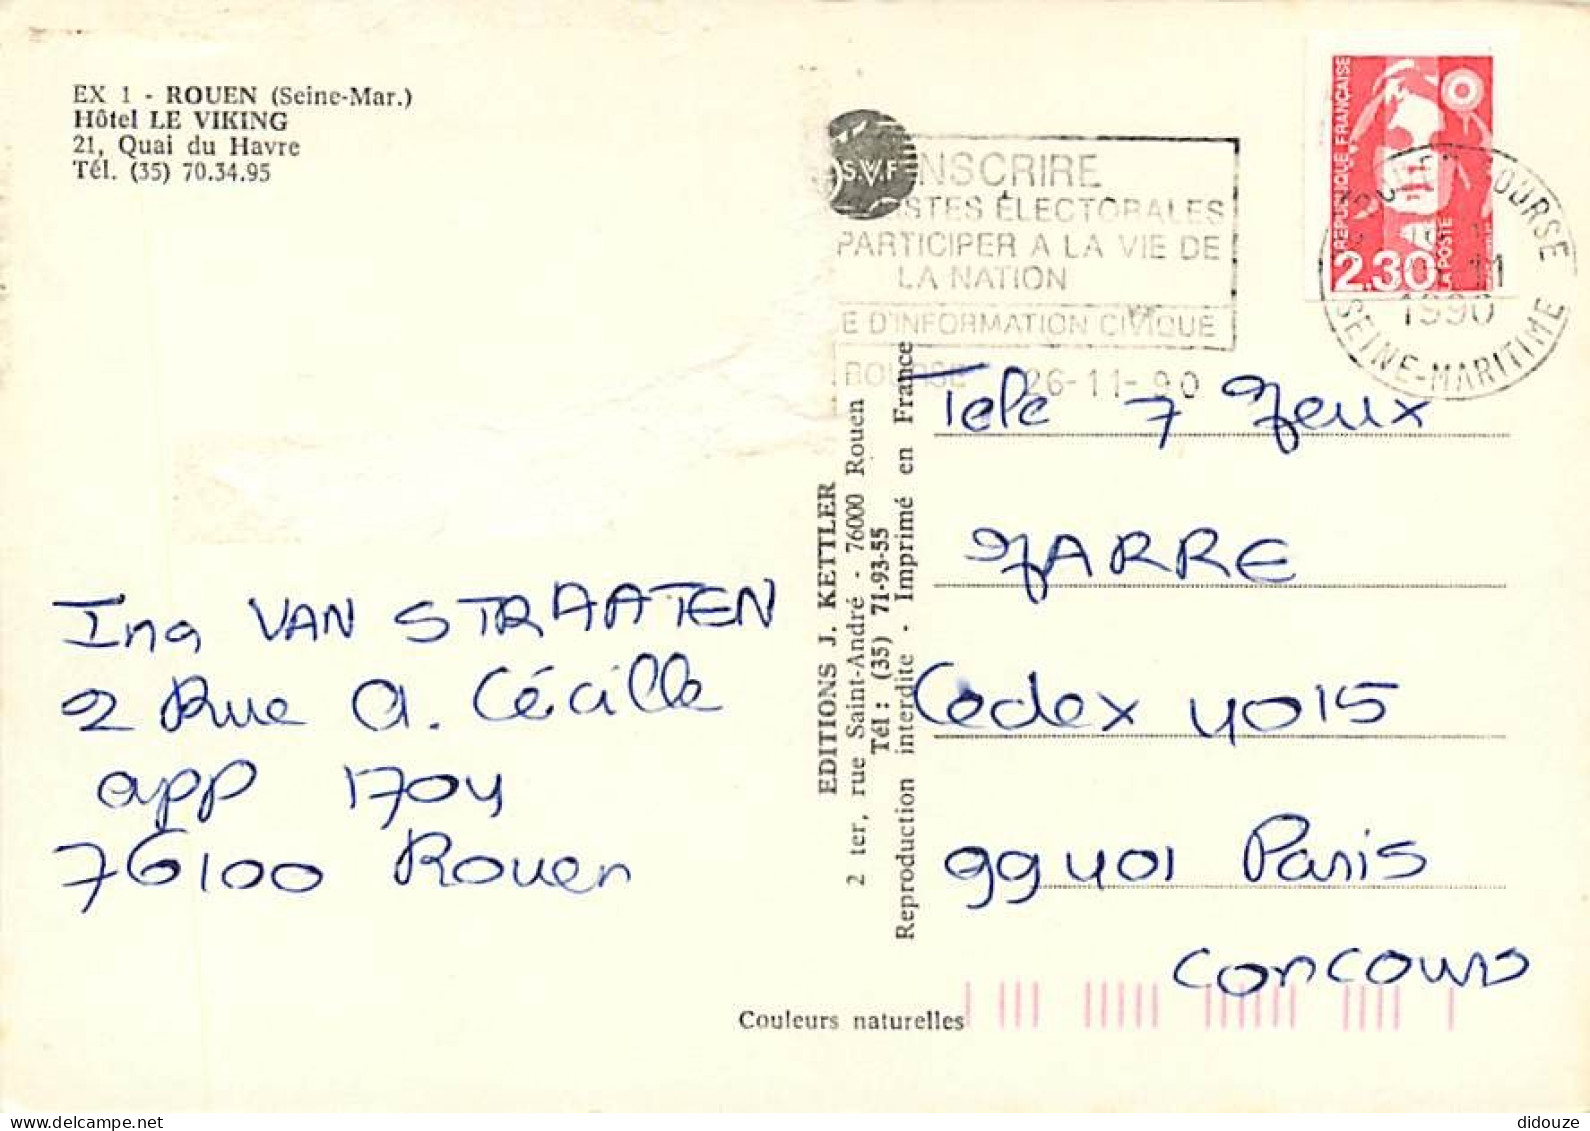 EX 1 - ROUEN (Seine-Mar.)
Hôtel LE VIKING
21, Quai du Havre
Tél. (35) 70.34.95
S.V.F
INSCRIRE
ISTES ÉLECTORALES
PARTICIPER A LA VIE DE
LA NATION
E D'INFORMATION CIVIQUE
BOURSE 26-11-90
RÉPUBLIQUE FRANÇAISE
2.30
LA POSTE
BOURSE
11
1990
SEINE-MARITIME
Ing VAN STRAATEN
2 Rue A. Cécille
app 1704
76100 Rouen
EDITIONS J. KETTLER
2 ter, rue Saint-André - 76000 Rouen
Tél : (35) 71-93-55
Reproduction interdite - Imprimé en France
Tele 7 Jeux
JARRE
Cedex 4015
99401 Paris
concours
Couleurs naturelles
didouze